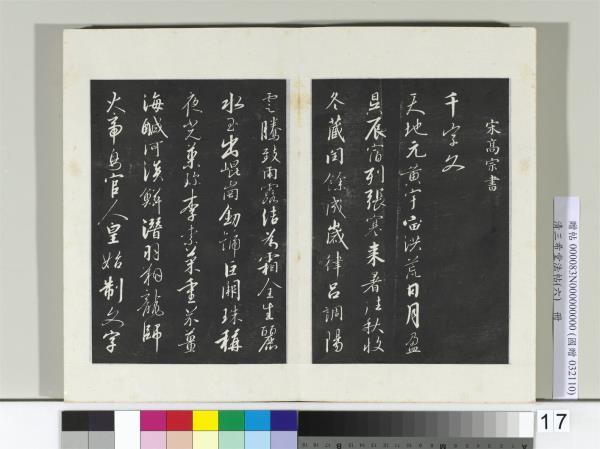 宋高宗書
千字文
天地元黃宇宙洪荒日月盈
昃辰宿列張寒来暑往秋收
冬藏閏餘成歲律呂調陽
雲騰致雨露結為霜金生麗
水玉出崐崗劍號巨闕珠稱
夜光菓珍李柰菜重芥薑
海鹹河淡鱗潛羽翔龍師
火帝鳥官人皇始制文字
贈帖 000083N000000000 (國贈 032110)
清三希堂法帖(六) 冊
17